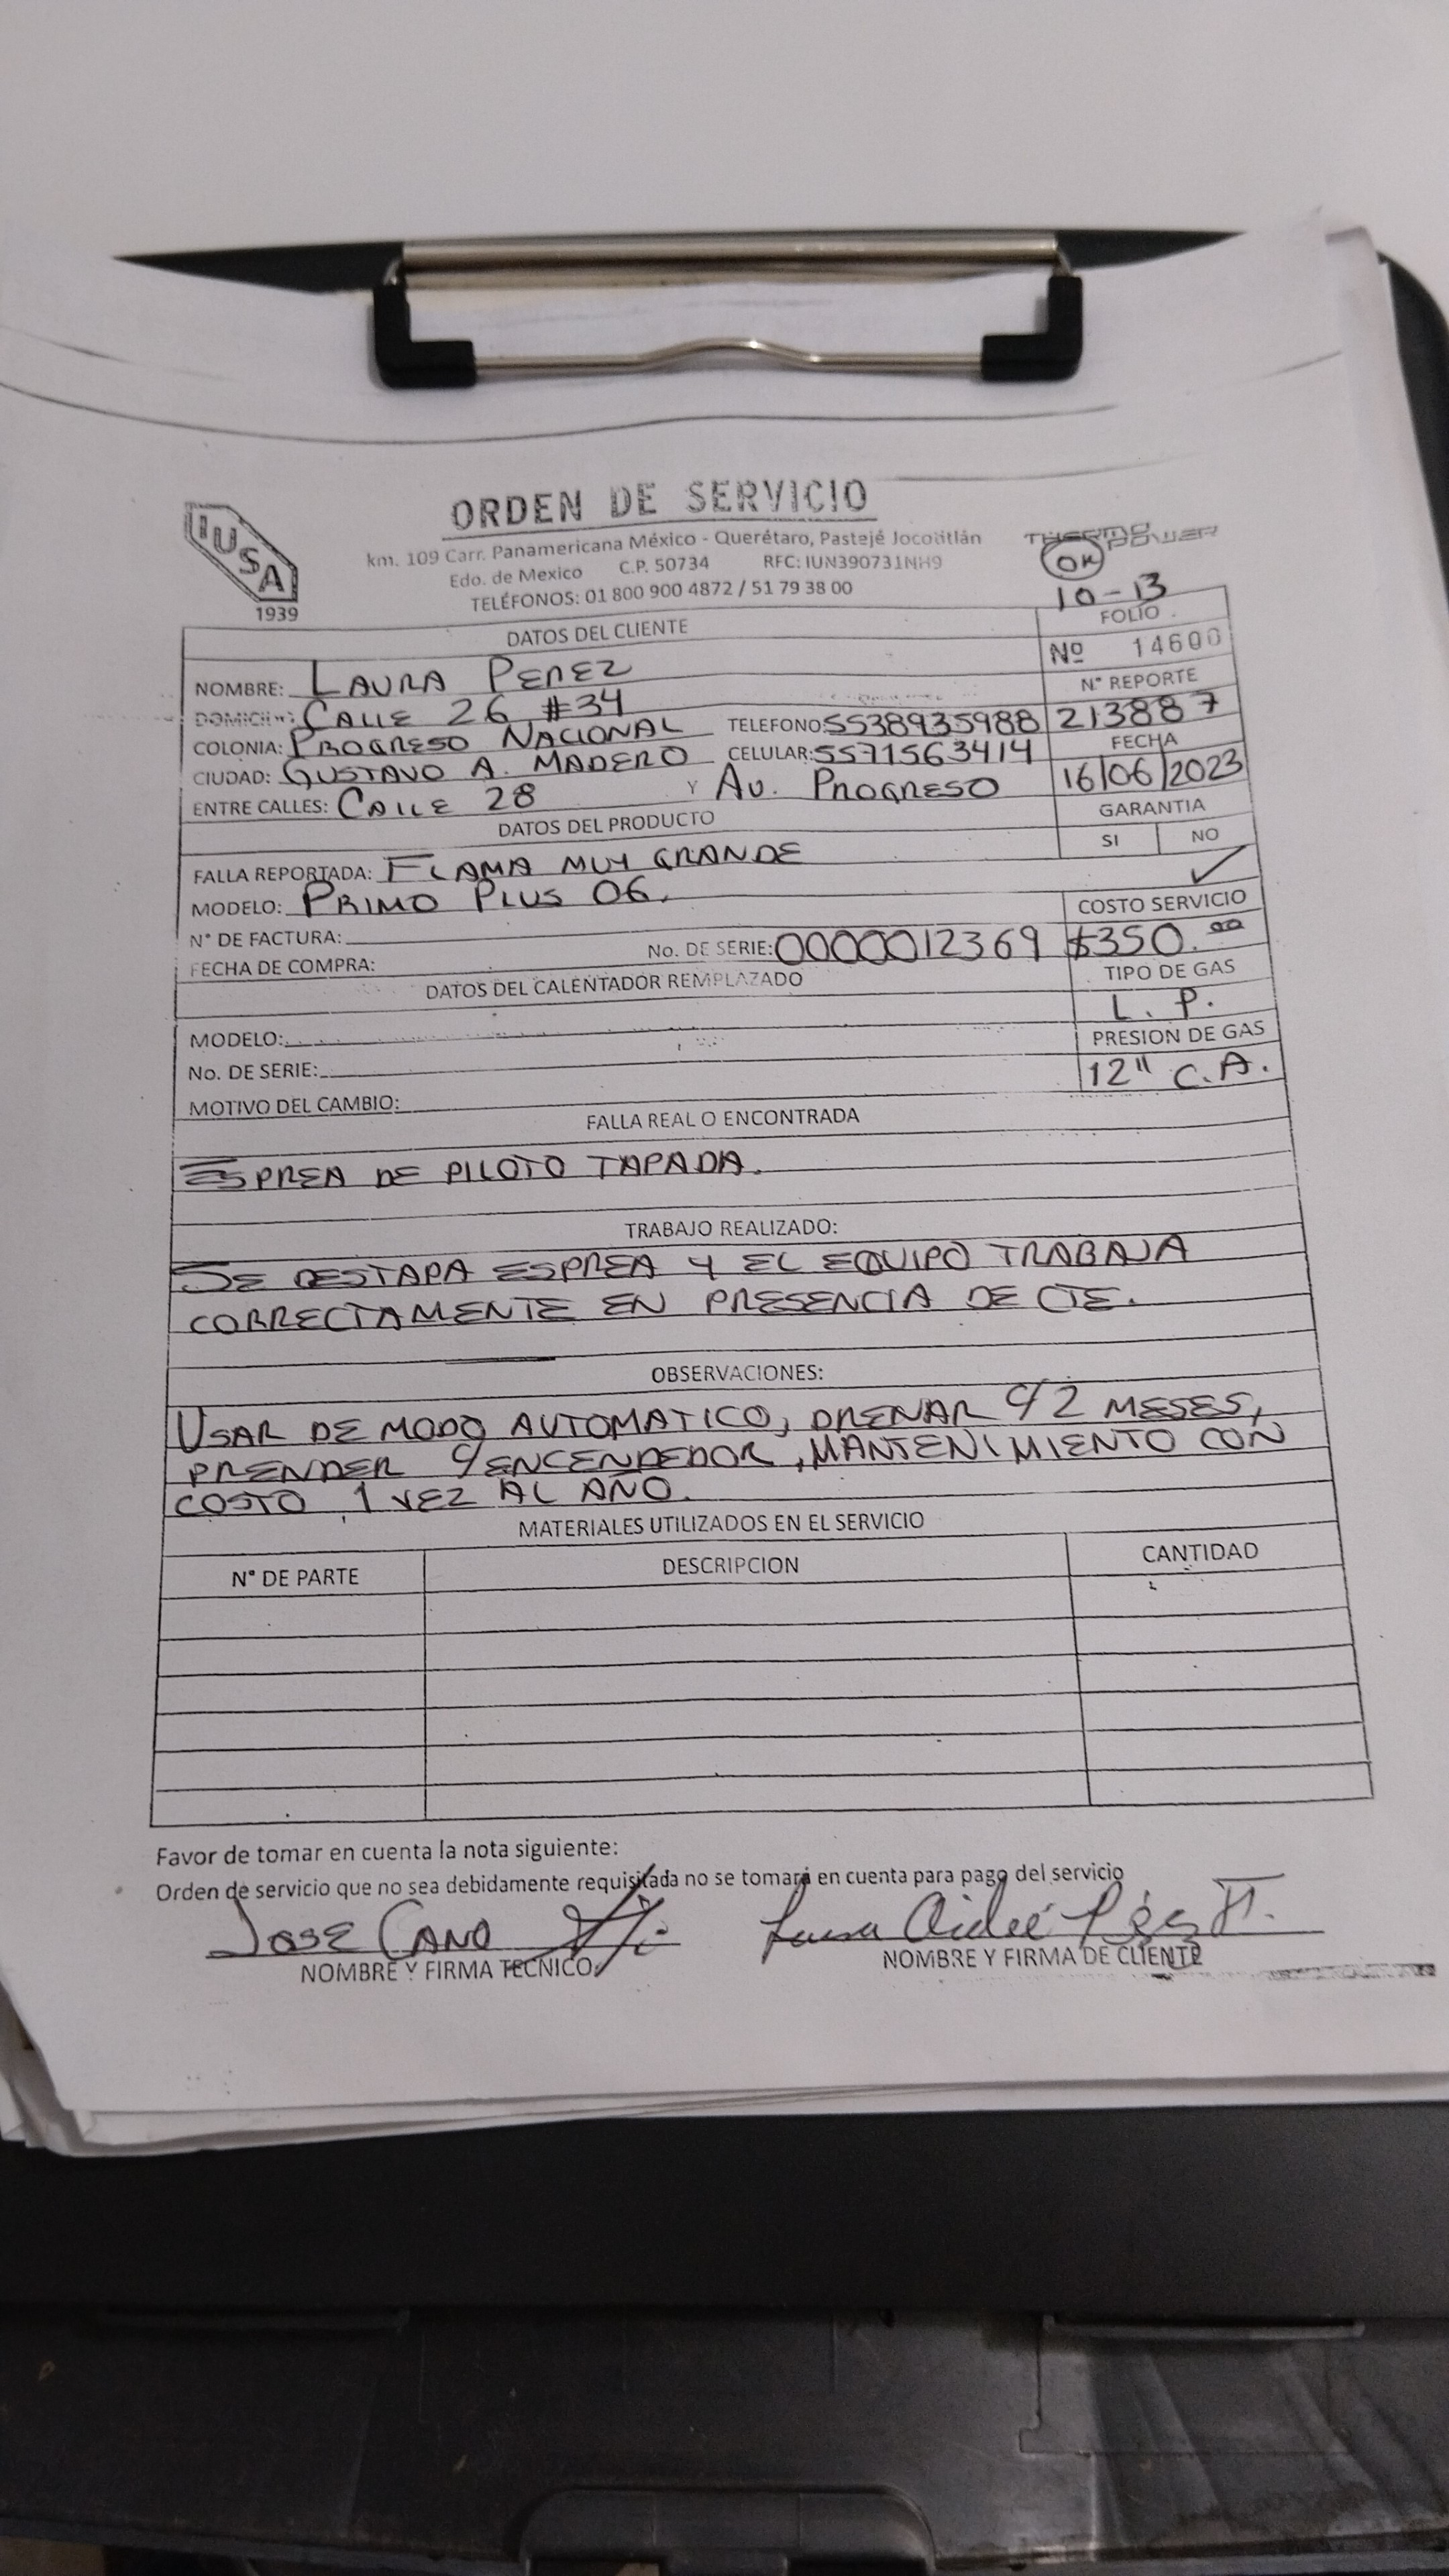 ORDEN DE SERVICIO
IUSA
1939
km. 109 Carr. Panamericana México - Querétaro, Pastejé Jocotitlán
Edo. de Mexico C.P. 50734 RFC: IUN390731NH9
TELÉFONOS: 01 800 900 4872 / 51 79 38 00
THERMO POWER
OK
10-13
DATOS DEL CLIENTE
FOLIO
Nº 14600
NOMBRE: LAURA PEREZ
Nº REPORTE
DOMICILIO: CALLE 26 #34
213887
COLONIA: PROGRESO NACIONAL TELEFONO: 5538935988
FECHA
CIUDAD: GUSTAVO A. MADERO CELULAR: 5571563414
16/06/2023
ENTRE CALLES: CALLE 28 Y AV. PROGRESO
GARANTIA
DATOS DEL PRODUCTO
SI NO
FALLA REPORTADA: FLAMA MUY GRANDE
✓
MODELO: PRIMO PLUS 06.
COSTO SERVICIO
N° DE FACTURA:
No. DE SERIE: 0000012369 $350.00
FECHA DE COMPRA:
TIPO DE GAS
DATOS DEL CALENTADOR REMPLAZADO
L. P.
MODELO:
PRESION DE GAS
No. DE SERIE:
12" C.A.
MOTIVO DEL CAMBIO:
FALLA REAL O ENCONTRADA
ESPREA DE PILOTO TAPADA.
TRABAJO REALIZADO:
SE DESTAPA ESPREA Y EL EQUIPO TRABAJA
CORRECTAMENTE EN PRESENCIA DE CTE.
OBSERVACIONES:
USAR DE MODO AUTOMATICO, DRENAR C/2 MESES,
PRENDER C/ENCENDEDOR, MANTENIMIENTO CON
COSTO 1 VEZ AL AÑO.
MATERIALES UTILIZADOS EN EL SERVICIO
N° DE PARTE DESCRIPCION CANTIDAD
Favor de tomar en cuenta la nota siguiente:
Orden de servicio que no sea debidamente requisitada no se tomará en cuenta para pago del servicio
JOSE CANO
NOMBRE Y FIRMA TECNICO
NOMBRE Y FIRMA DE CLIENTE